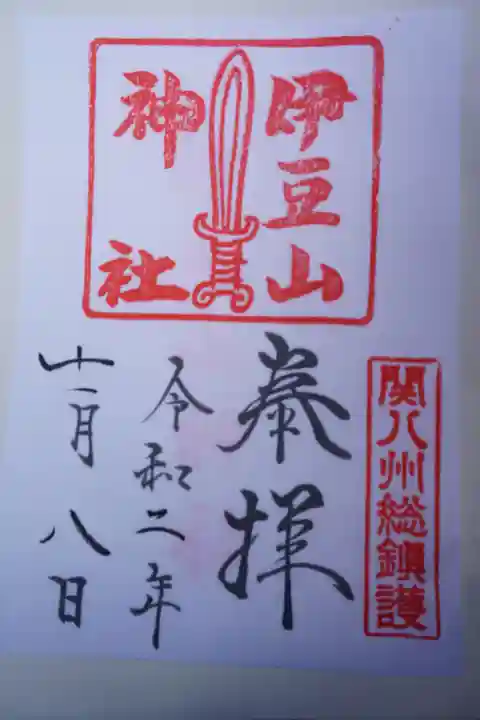 伊豆山
神社
関八州総鎮護
奉拝
令和二年
十一月八日